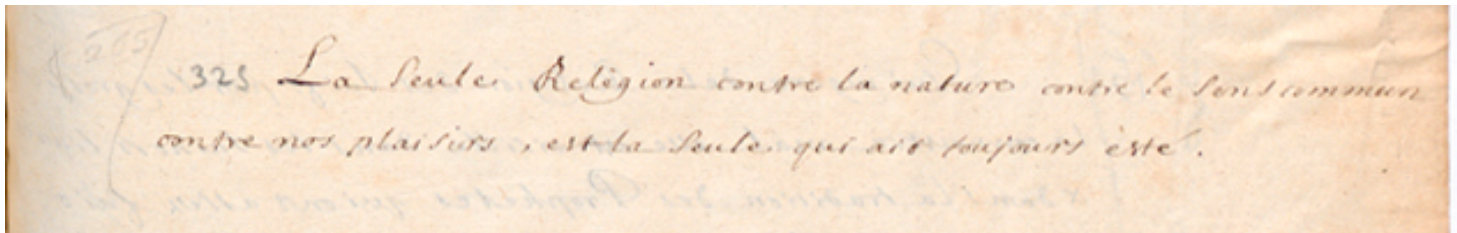 265
325 La seule Religion contre la nature contre le sens commun
contre nos plaisirs, est la seule, qui ait toujours èsté.